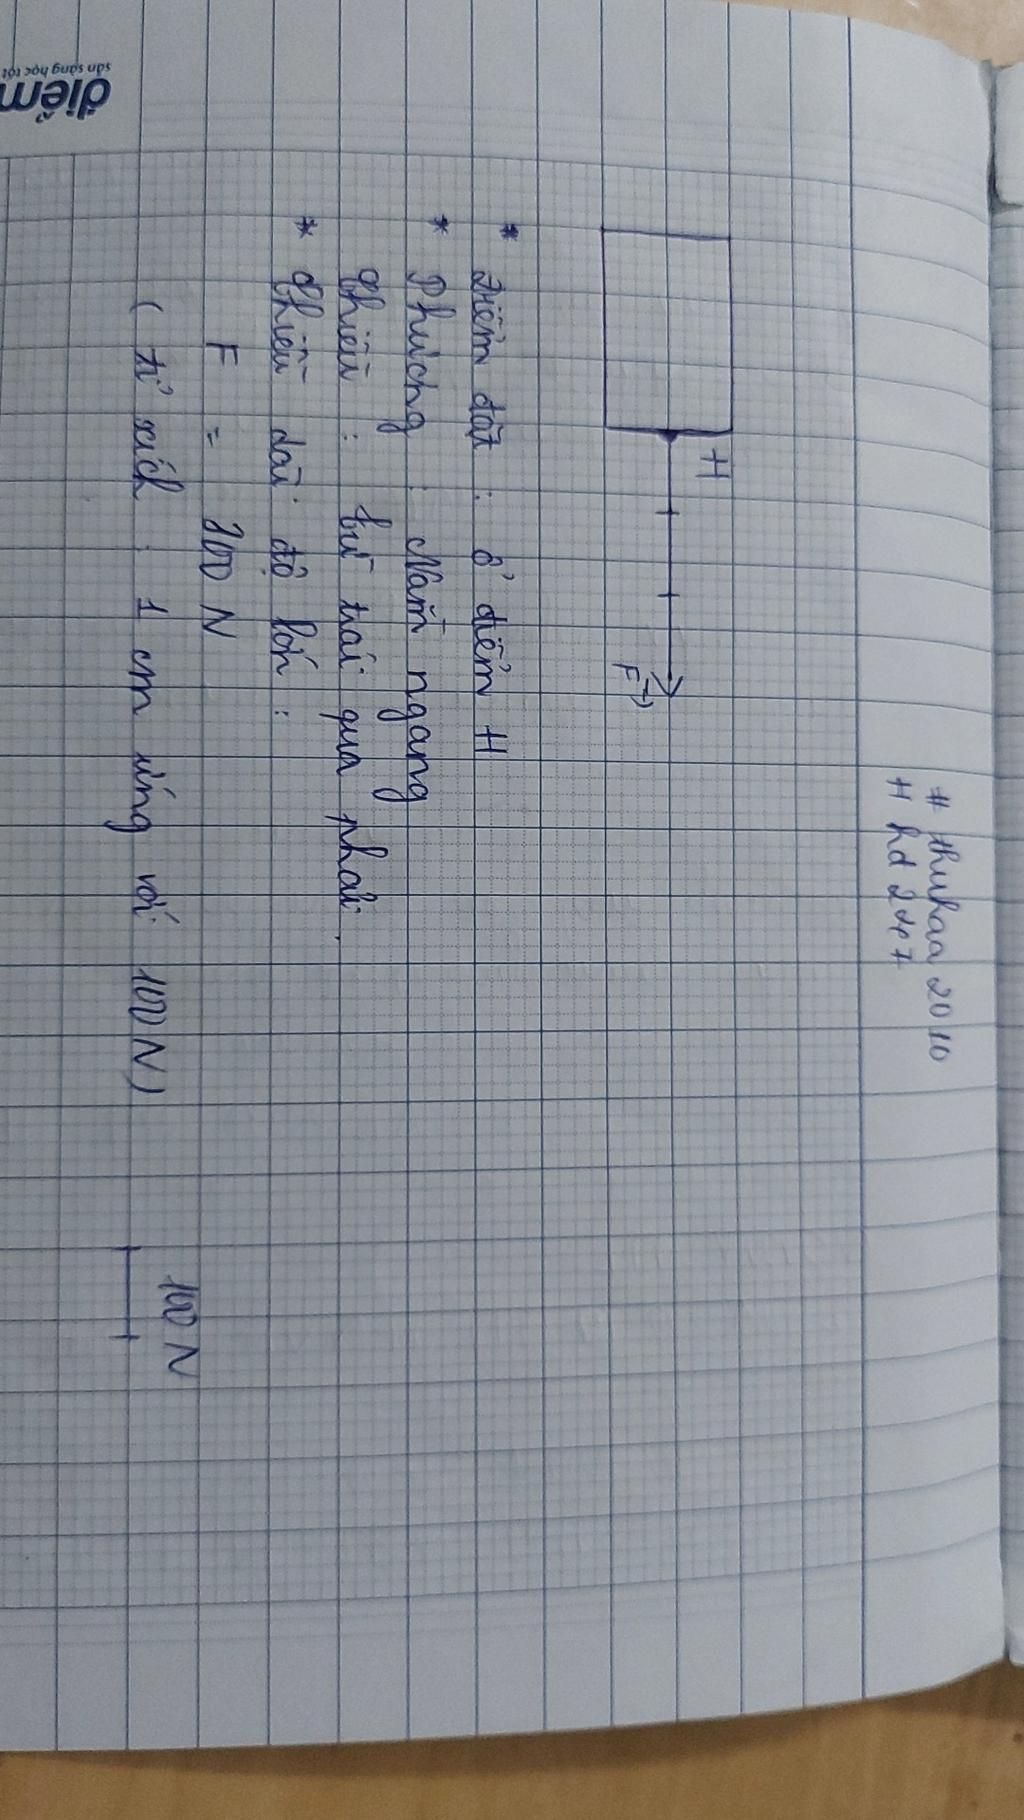 # thuhaa 2010
# hd 247
H
F
* Điểm đặt : ở điểm H
* Phương : Nằm ngang
Chiều : từ trái qua phải.
* Chiều dài độ lớn :
F = 300 N
( tỉ xích : 1 cm ứng với 100 N)
100 N
điểm
sẵn sàng học tốt